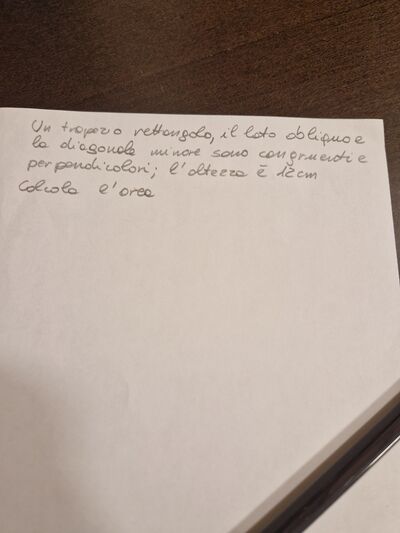 Un trapezio rettangolo, il lato obliquo e
la diagonale minore sono congruenti e
perpendicolari; l'altezza è 12cm
Calcola l'area